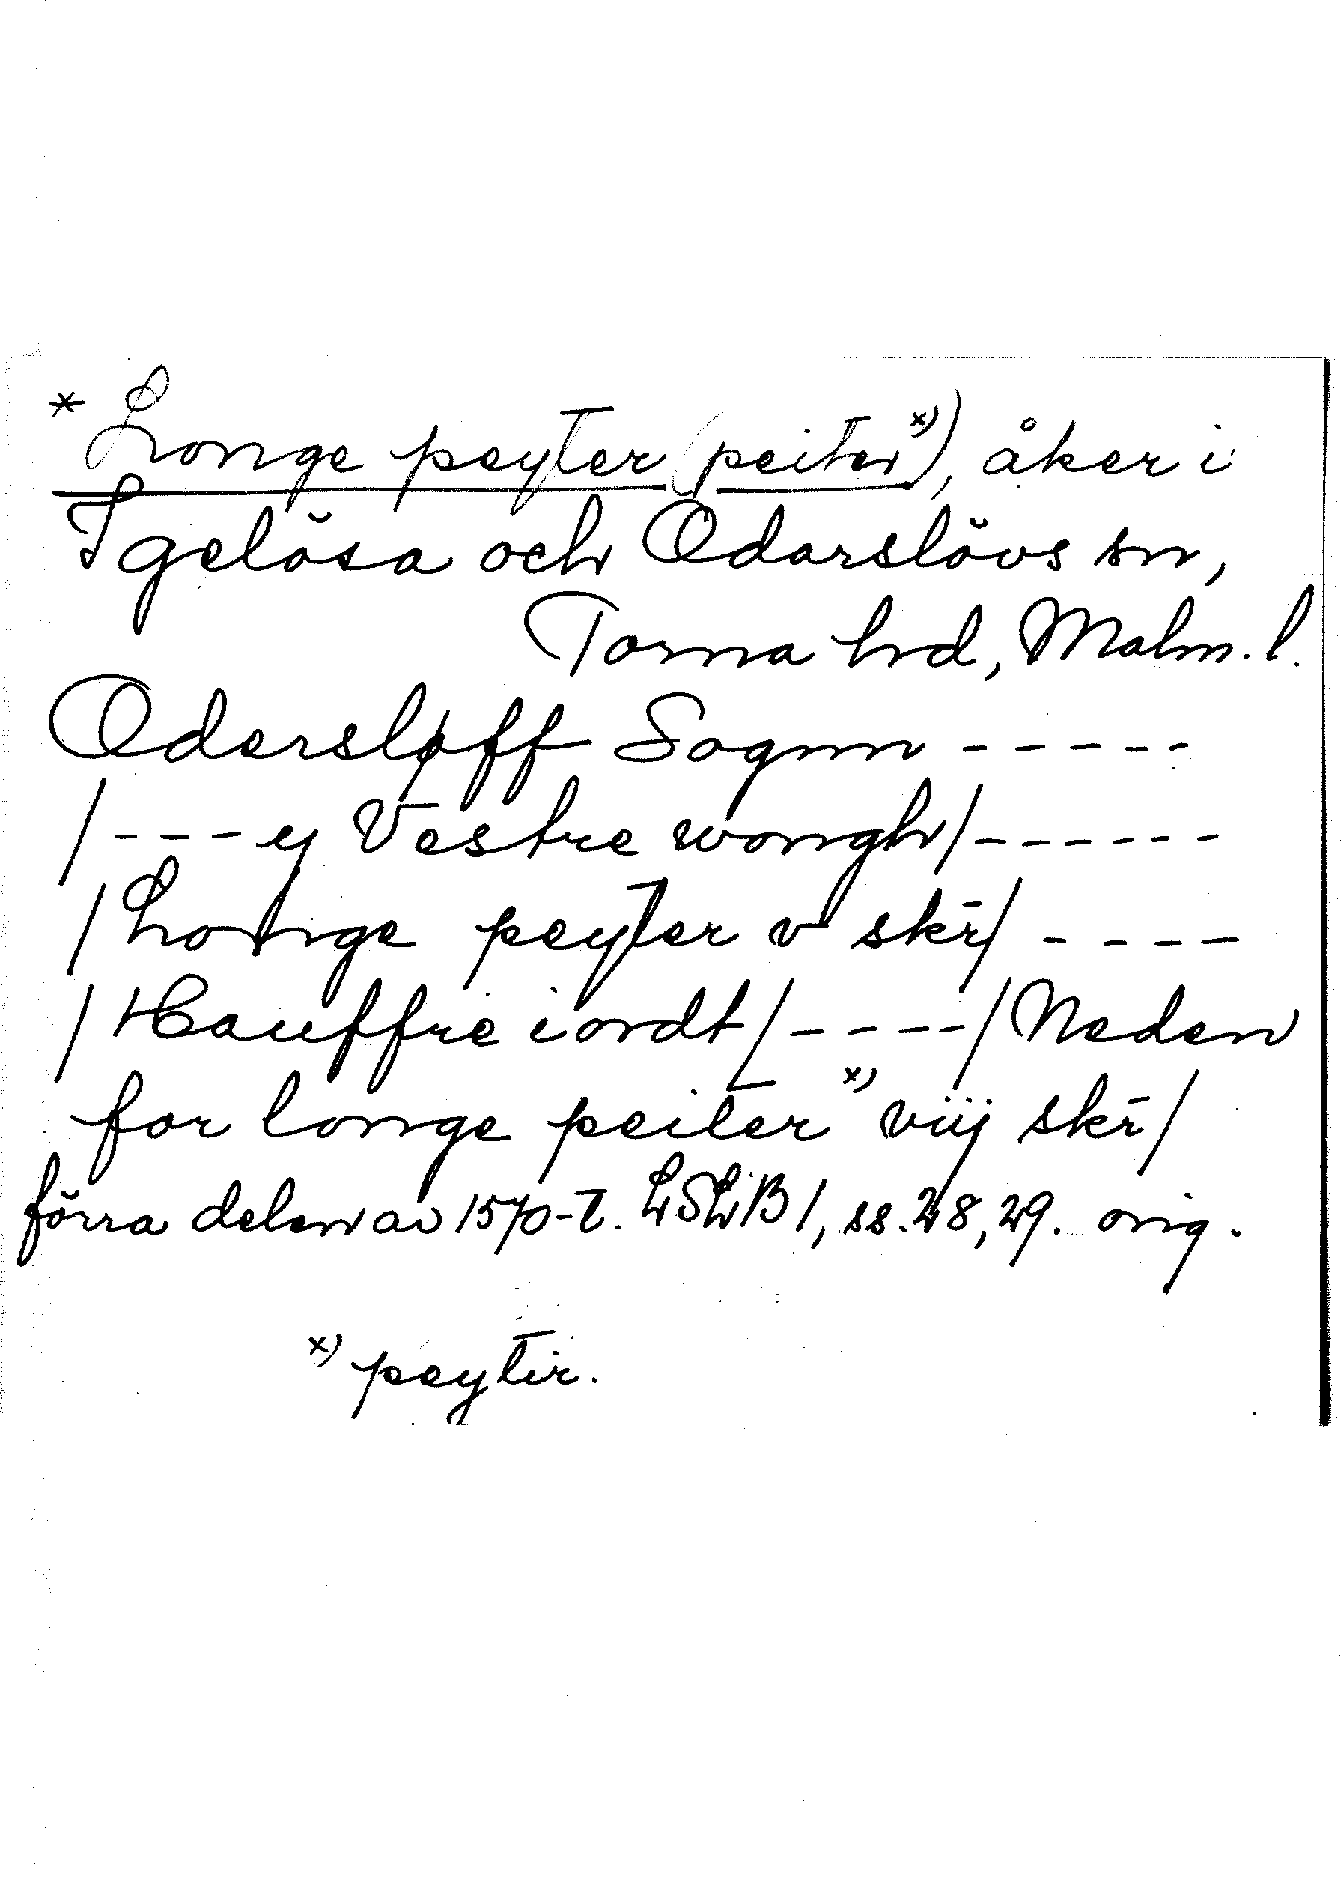 * Longe peyter (peiter x)), åker i
Igelösa och Odarslövs sn,
Torna hrd, Malm. l.
Odersløff Sognn - - - - -
/- - - ej Vestre wongh/- - - - - -
/Longe peyter v skr̄/ - - - -
/Hauffre iordt/- - - -/Neden
for longe peiter x) viij skr̄/
förra delen av 1570-t. LSLB 1, ss. 28, 29. orig.
x) peytir.